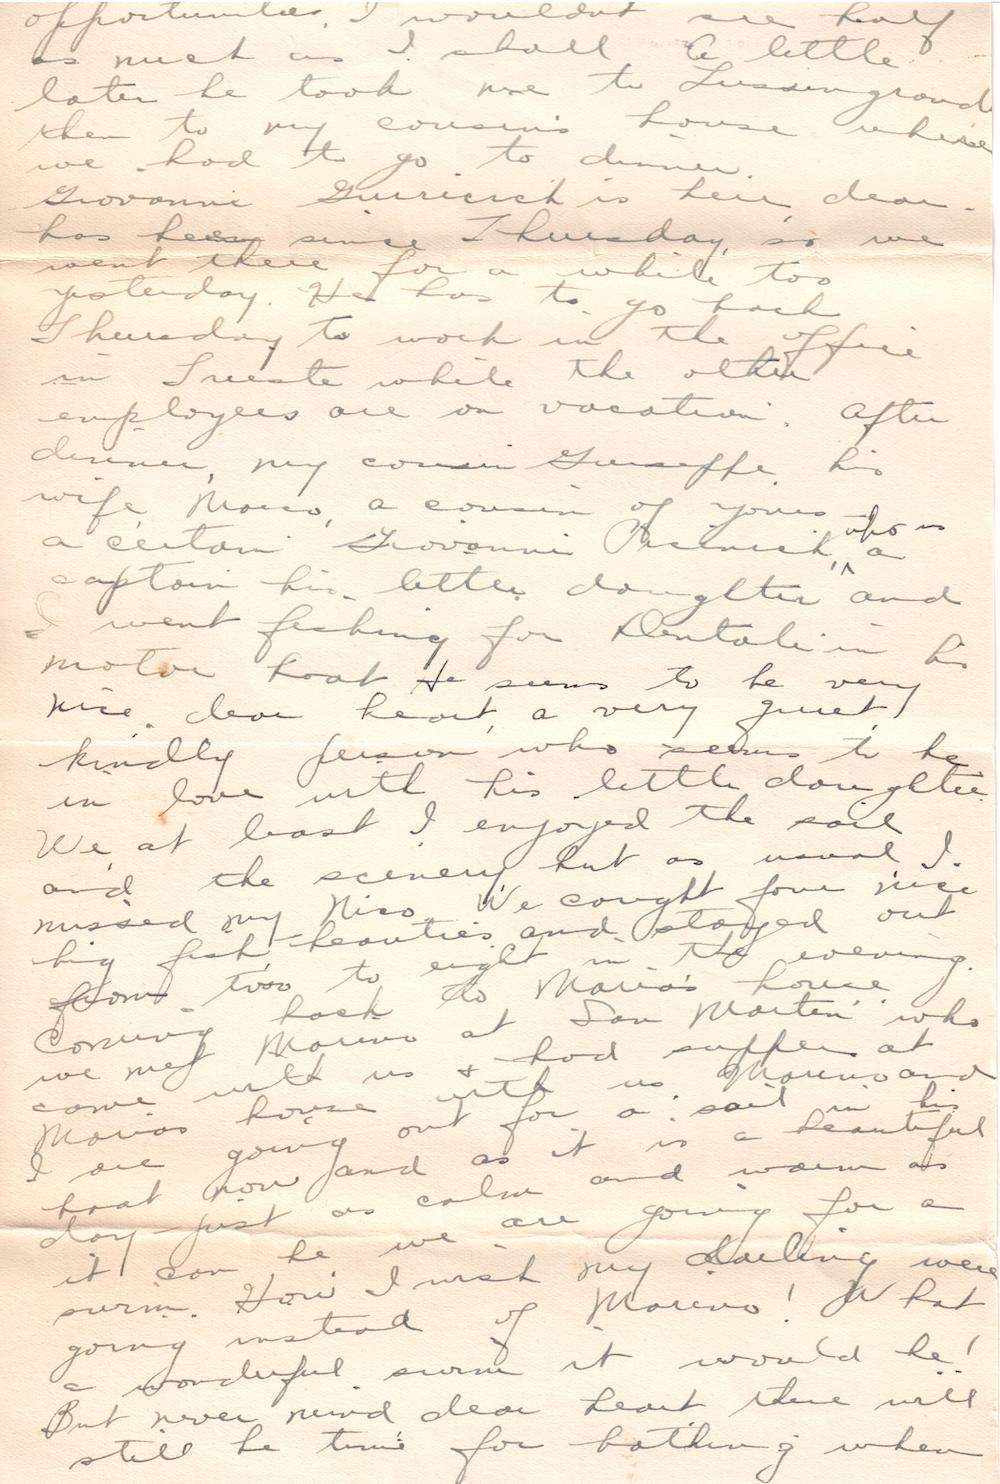 opportunities, I wouldn't see half
as much as I shall. A little
later he took me to Lussingrande
then to my cousin's house where
we had to go to dinner.
Giovanni is here, dear.
has been since Thursday, so we
went there for a while too
yesterday. He has to go back
Thursday to work in the office
in Trieste while the other
employees are on vacation. After
dinner, my cousin Giuseffe, his
wife, Maria, a cousin of yours
a certain Giovanni who is a
captain his little daughter and
I went fishing for Dentali in his
motor boat He seems to be very
nice, dear heart, a very quiet,
kindly person who seems to be
in love with his little daughter.
We at least I enjoyed the sail
and the scenery but as usual I
missed my Nico. We caught four nice
big fish beauties and stayed out
from two to eight in the evening.
Coming back to Maria's house
we met Marino at San Martin who
came with us & had supper at
Marias house with us Marino and
I are going out for a sail in his
boat now and as it is a beautiful
day just as calm and warm as
it can be we are going for a
swim. How I wish my darling were
going instead of Marino! What
a wonderful swim it would be!
But never mind dear heart there will
still be time for bathing when